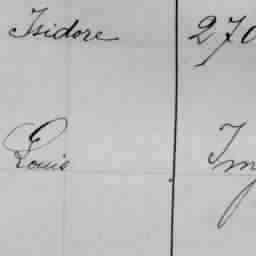 Isidore 270
Louis Im